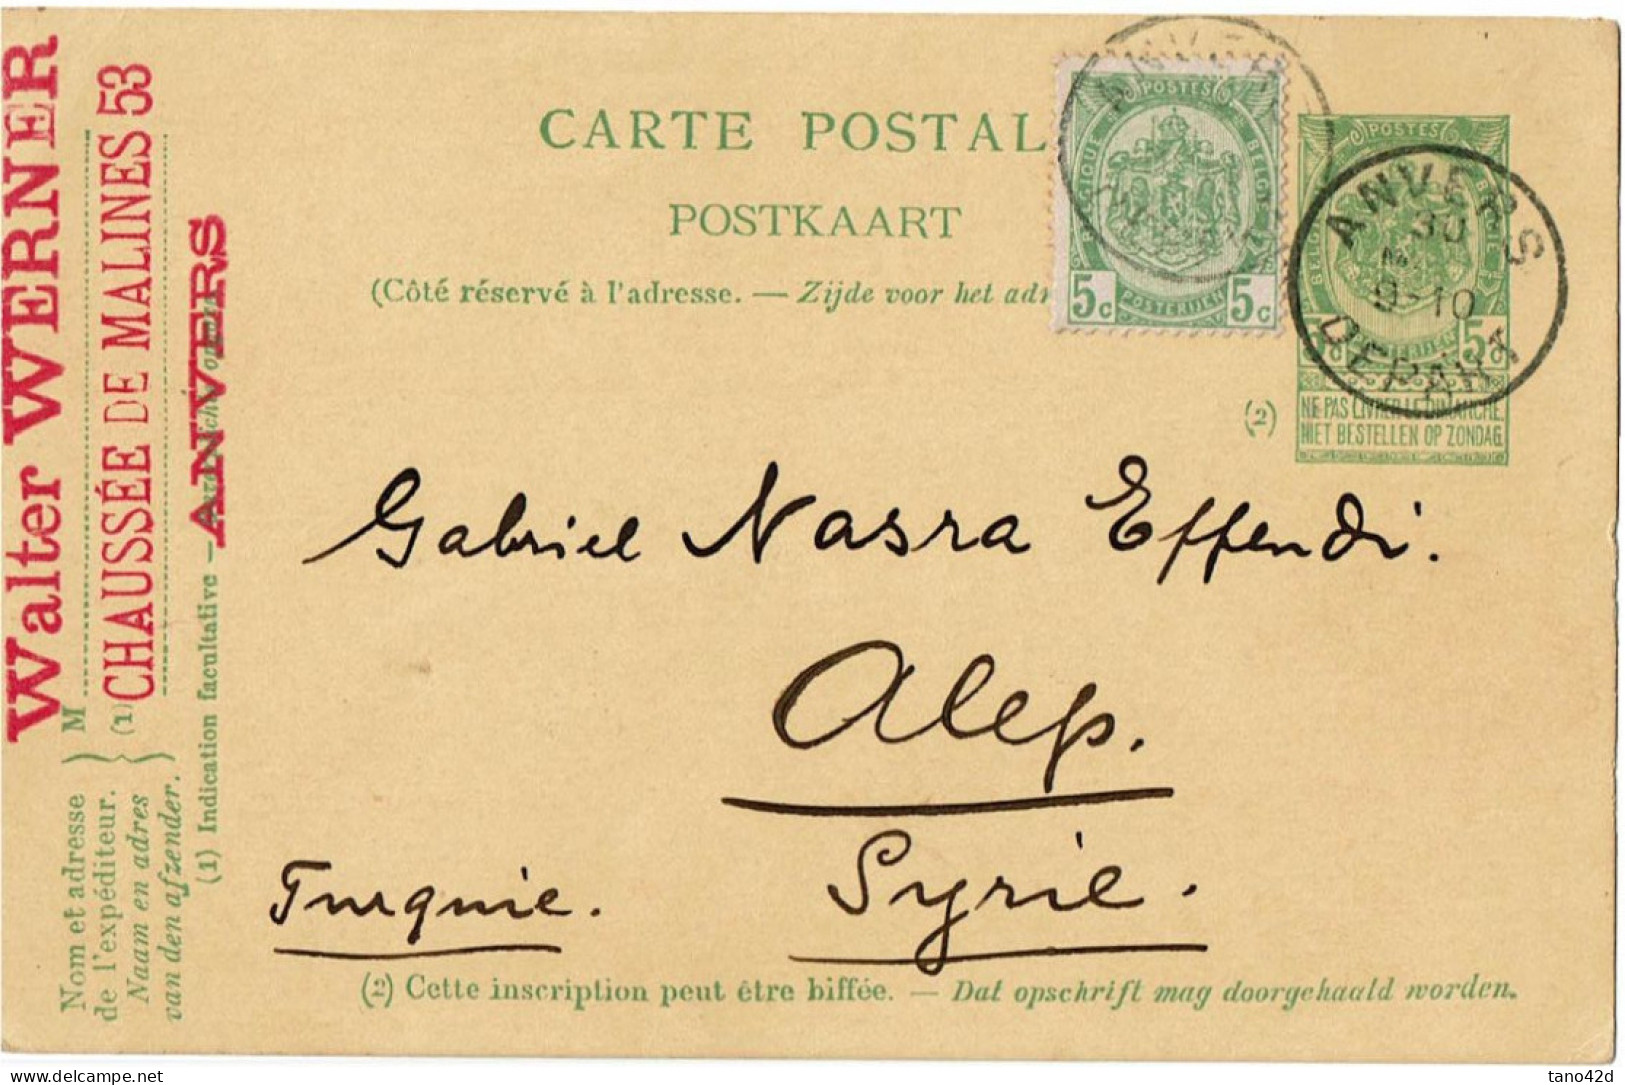 CARTE POSTAL
POSTKAART
(Côté réservé à l'adresse. — Zijde voor het adr
POSTES
5c POSTERIJEN 5c
POSTES
ANVERS
30
9-10
DEPART
(2)
NE PAS LIVRER LE DIMANCHE
NIET BESTELLEN OP ZONDAG
Gabriel Nasra Effendi.
Alep.
Syrie.
Turquie.
(2) Cette inscription peut être biffée. — Dat opschrift mag doorgehaald worden.
Walter WERNER
CHAUSSÉE DE MALINES 53
ANVERS
M
(1)
Nom et adresse
de l'expéditeur.
Naam en adres
van den afzender.
(1) Indication facultative —
delcampe.net
tano42d